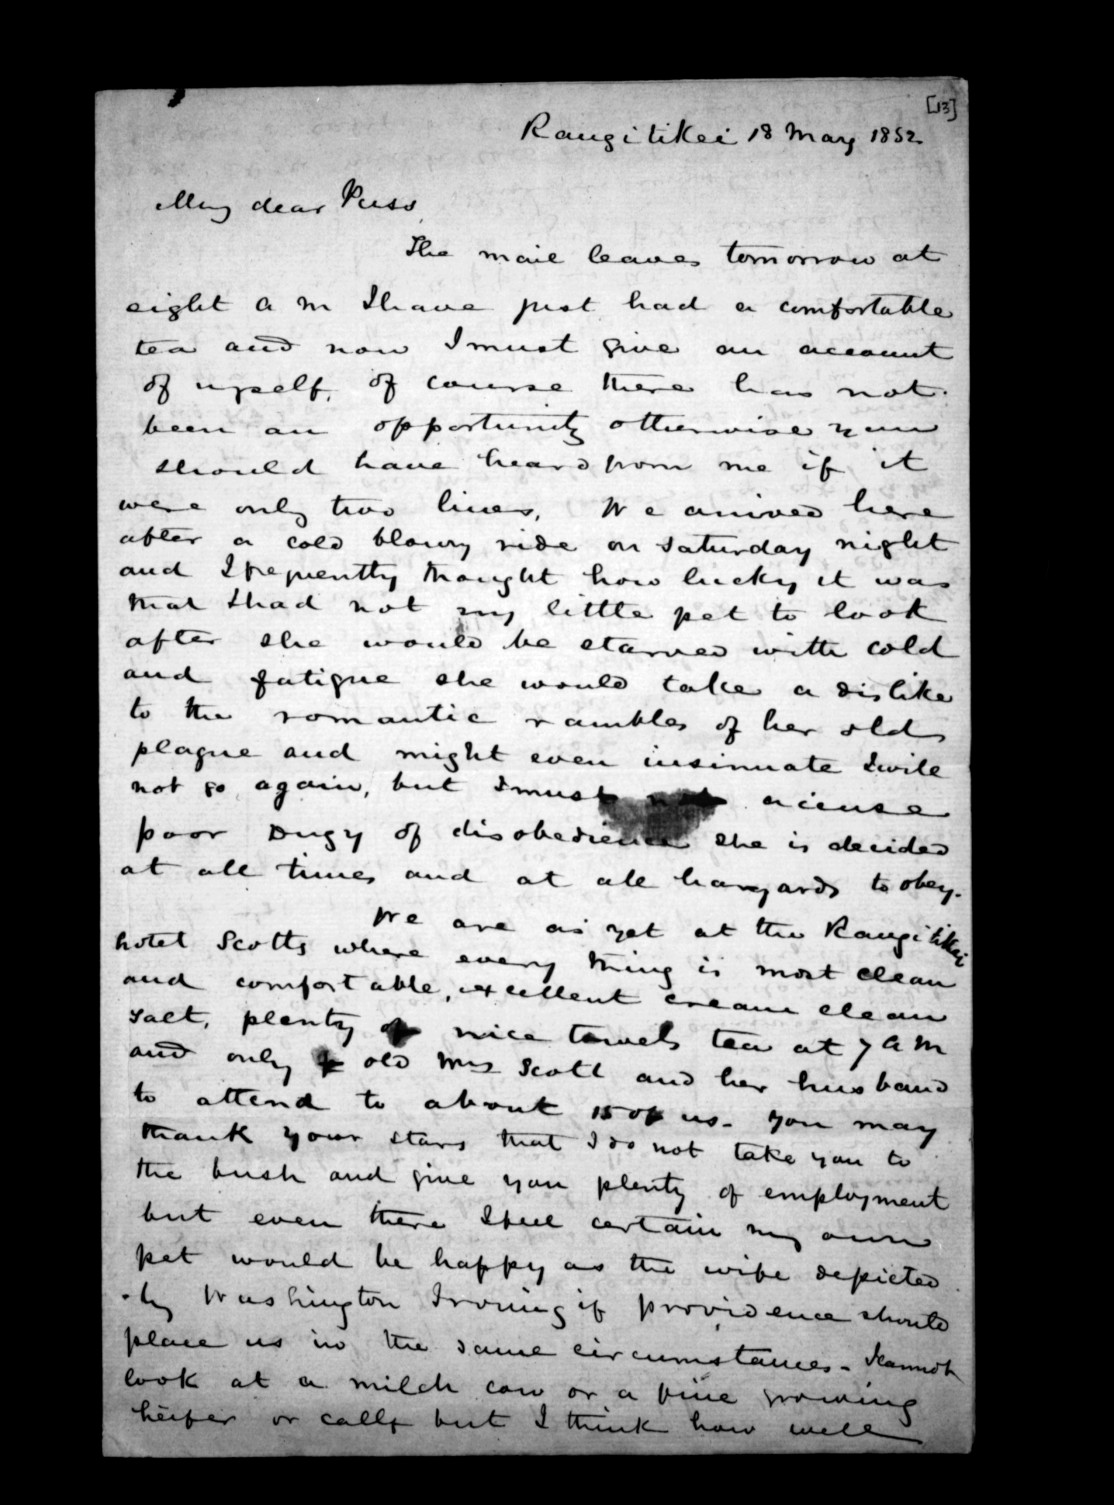 [13]
Rangitikei 18 May 1852
My dear Puss
The mail leaves tomorrow at
eight A M I have just had a comfortable
tea and now I must give an account
of myself, of course there has not
been an opportunity otherwise you
should have heard from me if it
were only two lines, We arrived here
after a cold blowy ride on Saturday night
and I frequently thought how lucky it was
that I had not my little pet to look
after she would be starved with cold
and fatigue she would take a dislike
to the romantic rambles of her old
plague and might even insinuate I will
not go again, but I must not accuse
poor Dugy of disobedience she is decided
at all times and at all hazards to obey.
We are as yet at the Rangitikei
hotel Scotts where every thing is most clean
and comfortable, excellent cream clean
salt, plenty of nice towels tea at 7 A M
and only old Mrs Scott and her husband
to attend to about 15 of us. You may
thank your stars that I do not take you to
the bush and give you plenty of employment
but even there I feel certain my own
pet would be happy as the wife depicted
by Washington Irving if providence should
place us in the same circumstances. I cannot
look at a milch cow or a fine growing
heifer or calf but I think how well